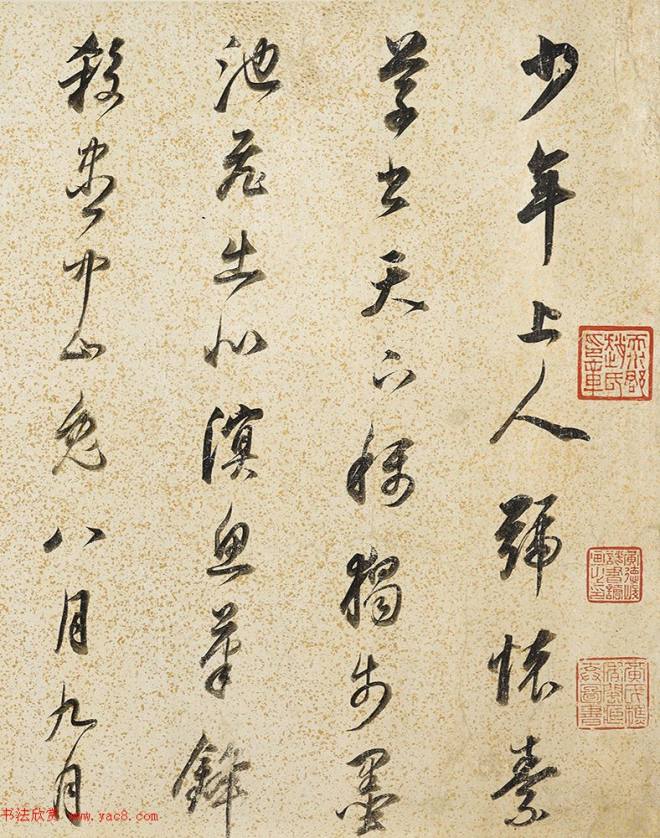 少年上人號懷素
草書天下稱獨步墨
池飛出北溟魚筆鋒
殺盡中山兔八月九月
书法欣赏 www.yac8.com